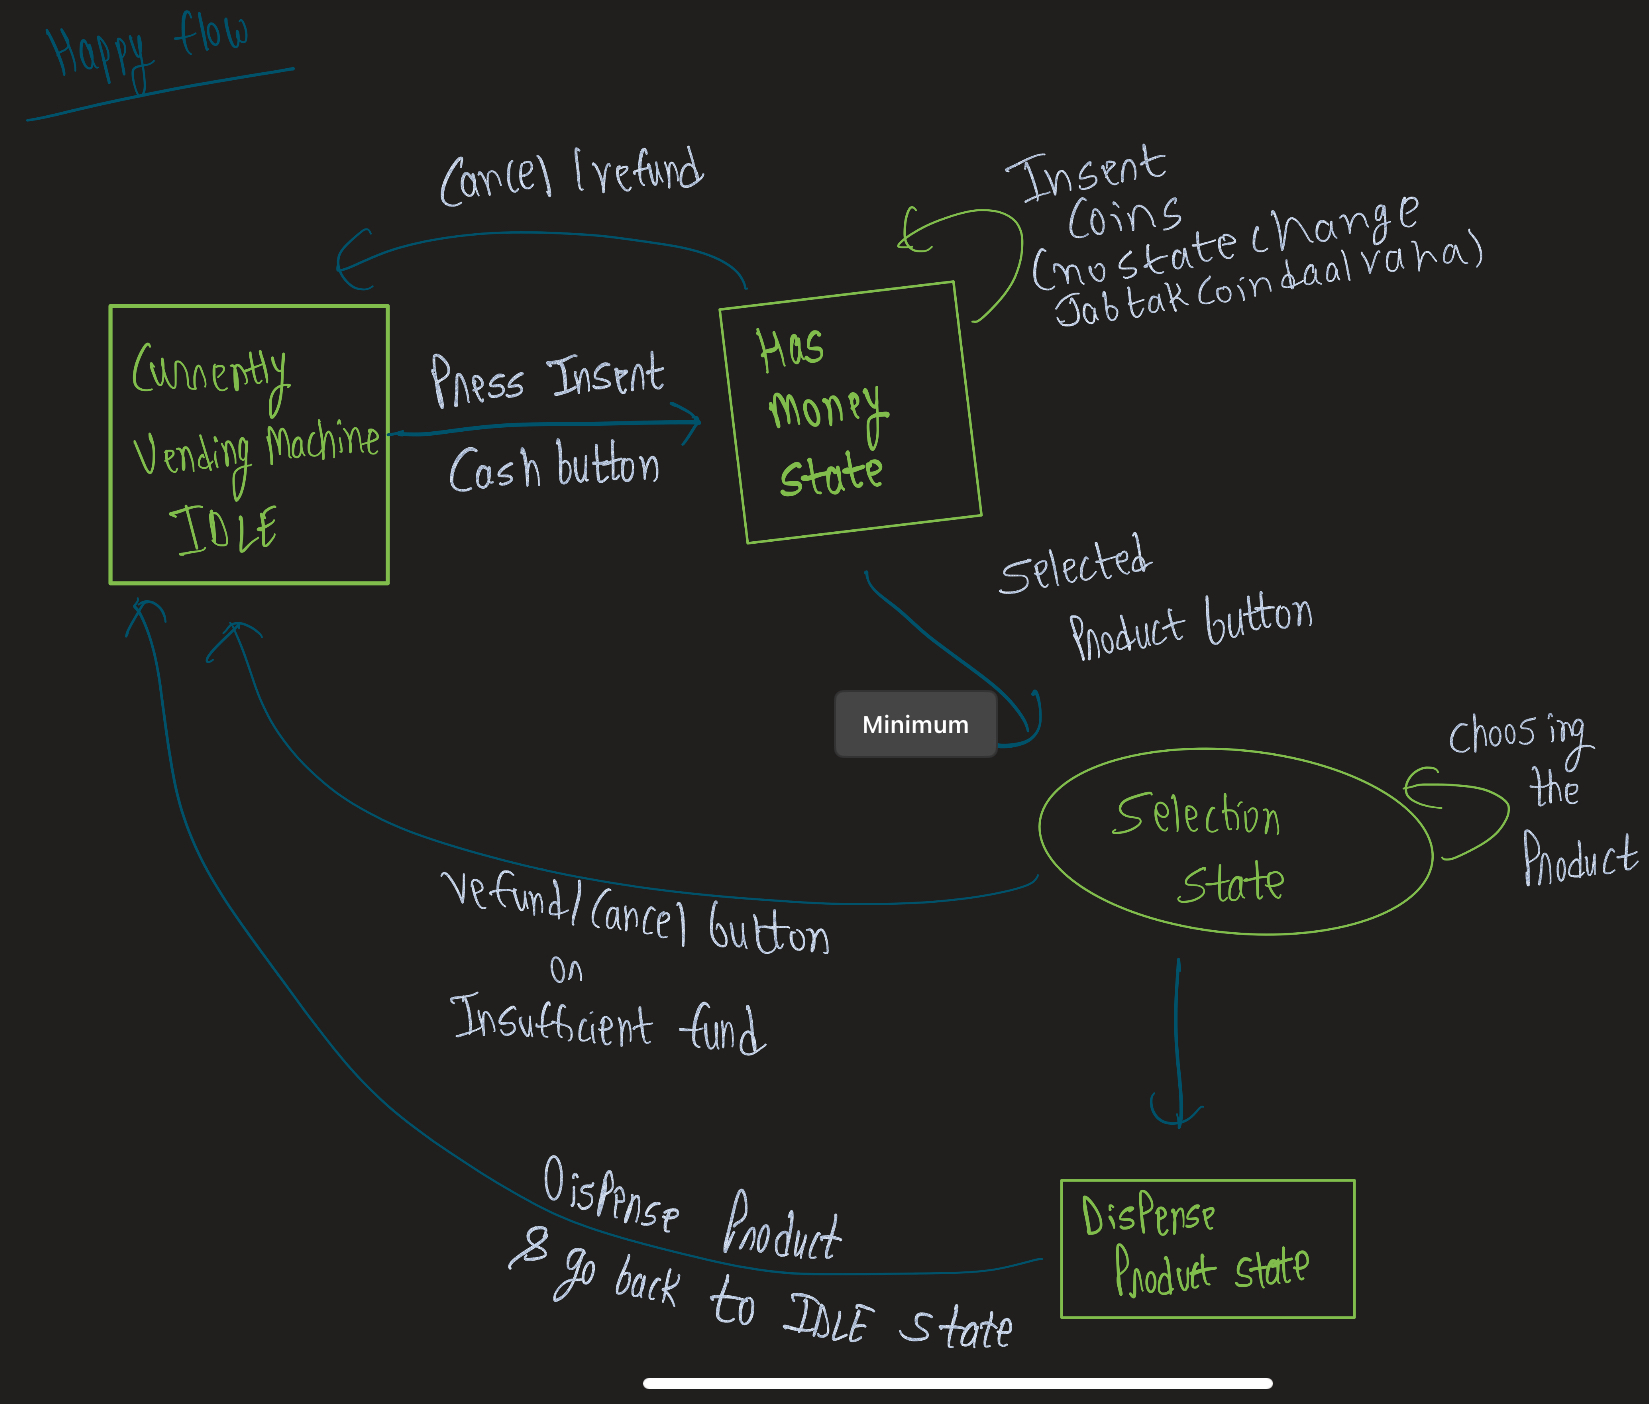 Happy flow
Cancel / refund
Insert
Coins
(no state change
Jab tak Coin daal raha)
Currently
Vending Machine
IDLE
Press Insert
Cash button
Has
Money
State
Selected
Product button
Minimum
Selection
State
Choosing
the
Product
refund/Cancel button
or
Insufficient fund
Dispense Product
& go back to IDLE State
Dispense
Product State